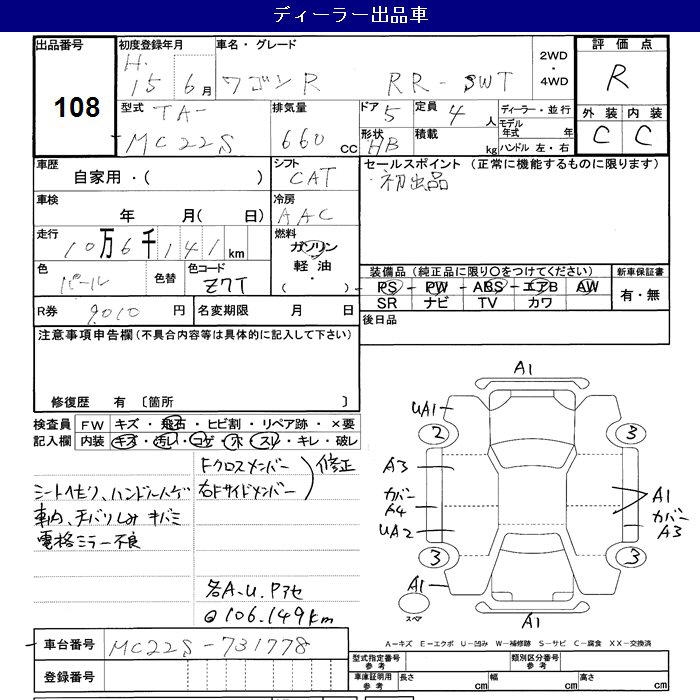 ディーラー出品車
出品番号 108
初度登録年月 H. 15 6月
車名・グレード ワゴンR RR-SWT
2WD・4WD
評価点 R
外装 C 内装 C
型式 TA-MC22S
排気量 660 CC
ドア 5 定員 4人
形状 HB 積載 kg
ディーラー・並行
モデル年式 年
ハンドル 左・右
車歴 自家用・( )
シフト CAT
セールスポイント (正常に機能するものに限ります)
初出品
車検 年 月( 日)
冷房 AAC
走行 10万6千141km
燃料 ガソリン
軽油・
( )
色 パール 色替
色コード Z7T
装備品 (純正品に限り○をつけてください)
PS PW ABS エアB AW
SR ナビ TV カワ
新車保証書 有・無
R券 9010円
名変期限 月 日
後日品
注意事項申告欄 (不具合内容等は具体的に記入して下さい)
修復歴 有 〔箇所 〕
検査員記入欄
FW キズ・飛石・ヒビ割・リペア跡・×要
内装 キズ・汚レ・コゲ・穴・スレ・キレ・破レ
Fクロスメンバー
右Fサイドメンバー
修正
シートヘセリ、ハンドルハゲ
車内、天バリしみ キバミ
電格ミラー不良
各A.U.Pアセ
106.149km
A1
UA1
2
3
A3
カバー
A4
UA2
A1
カバー
A3
3
3
A1
スペア
A1
A-キズ E-エクボ U-凹み W-補修跡 S-サビ C-腐食 XX-交換済
車台番号 MC22S-731778
登録番号
型式指定番号 参考
類別区分番号 参考
車庫証明用 参考
長さ cm 幅 cm 高さ cm